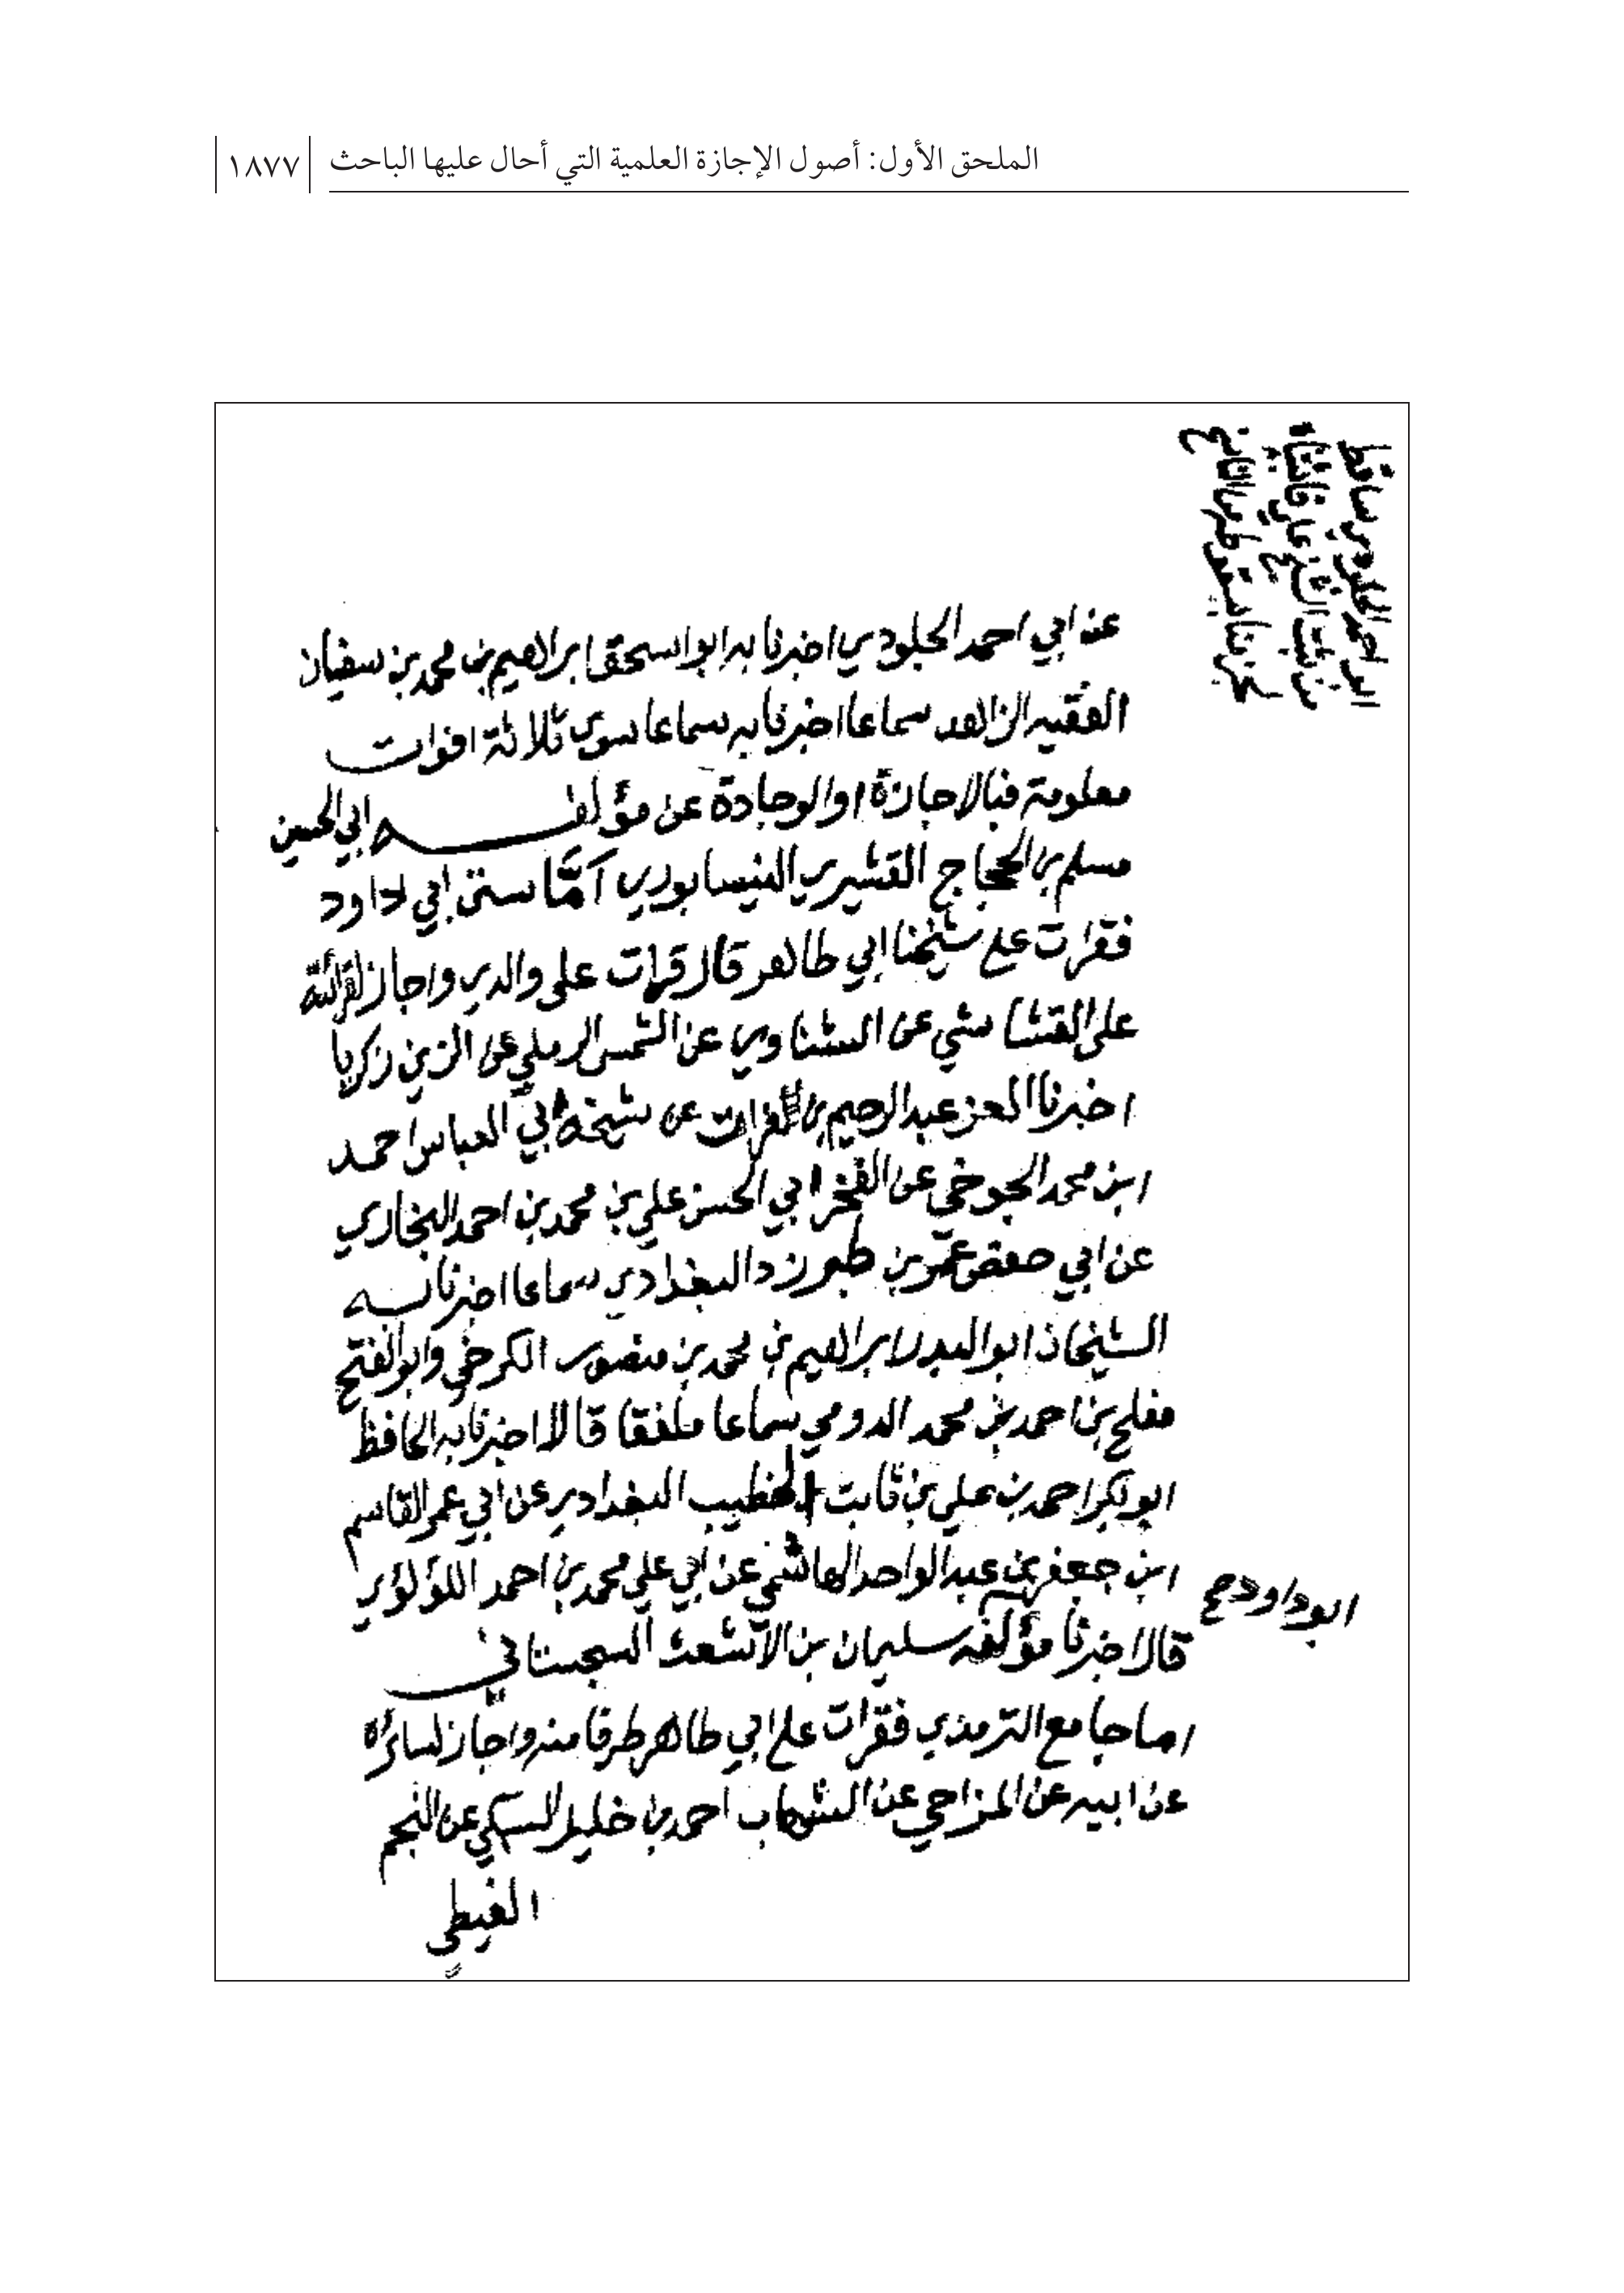 الملحق الأول: أصول الإجازة العلمية التي أحال عليها الباحث
١٨٧٧
ابو احمد الجلودي ساقط
عن ابي احمد الجلودي اخبرنا به ابو اسحق ابراهيم بن محمد بن سفيان
الفقيه الزاهد سماعا اخبرنا به سماعا سوى ثلاثة افوات
معلومة فبالاجازة او الوجادة عن مؤلفه ابي الحسين
مسلم بن الحجاج القشيري النيسابوري اما سنن ابي داود
فقرات على شيخنا ابي طاهر قال قرات على والدي واجاز لقرائته
على القشاشي عن الشناوي عن الشمس الرملي عن الزين زكريا
اخبرنا العز عبد الرحيم بن الفرات عن شيخه ابي العباس احمد
ابن محمد الجوخي عن الفخر ابي الحسن علي بن محمد بن احمد البخاري
عن ابي حفص عمر بن طبرزد البغدادي سماعا اخبرنا به
الشيخان ابو البدر ابراهيم بن محمد بن منصور الكرخي وابو الفتح
مفلح بن احمد بن محمد الدومي سماعا ملفقا قالا اخبرنا به الحافظ
ابو بكر احمد بن علي بن ثابت الخطيب البغدادي عن ابي عمر القاسم
ابن جعفر بن عبد الواحد الهاشمي عن ابي علي محمد بن احمد اللؤلؤي
ابو داود صح
قال اخبرنا مؤلفه سليمان بن الاشعث السجستاني
اما جامع الترمذي فقرات على ابي طاهر طرفا منه واجاز لسائره
عن ابيه عن المزاحي عن الشهاب احمد بن خليل السبكي عن النجم
الغيطي